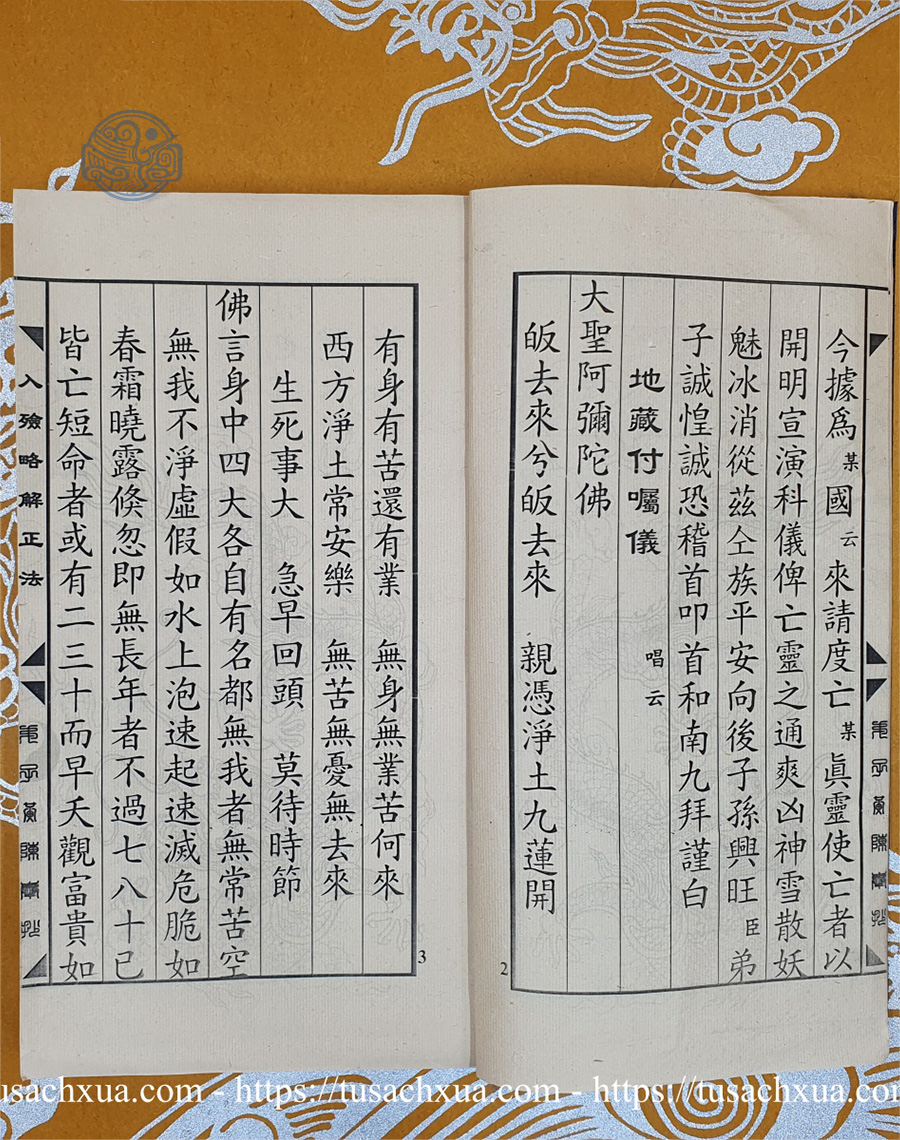 今據爲某國云來請度亡某眞靈使亡者以
開明宣演科儀俾亡靈之通爽凶神雪散妖
魅冰消從茲仝族平安向後子孫興旺臣弟
子誠惶誠恐稽首叩首和南九拜謹白
地藏付囑儀 唱云
大聖阿彌陀佛
皈去來兮皈去來 親憑淨土九蓮開
2
有身有苦還有業 無身無業苦何來
西方淨土常安樂 無苦無憂無去來
生死事大 急早回頭 莫待時節
佛言身中四大各自有名都無我者無常苦空
無我不淨虛假如水上泡速起速滅危脆如
春霜曉露倏忽即無長年者不過七八十已
皆亡短命者或有二三十而早夭觀富貴如
入殮略解正法
3
https://tusachxua.com - https://tusachxua.com